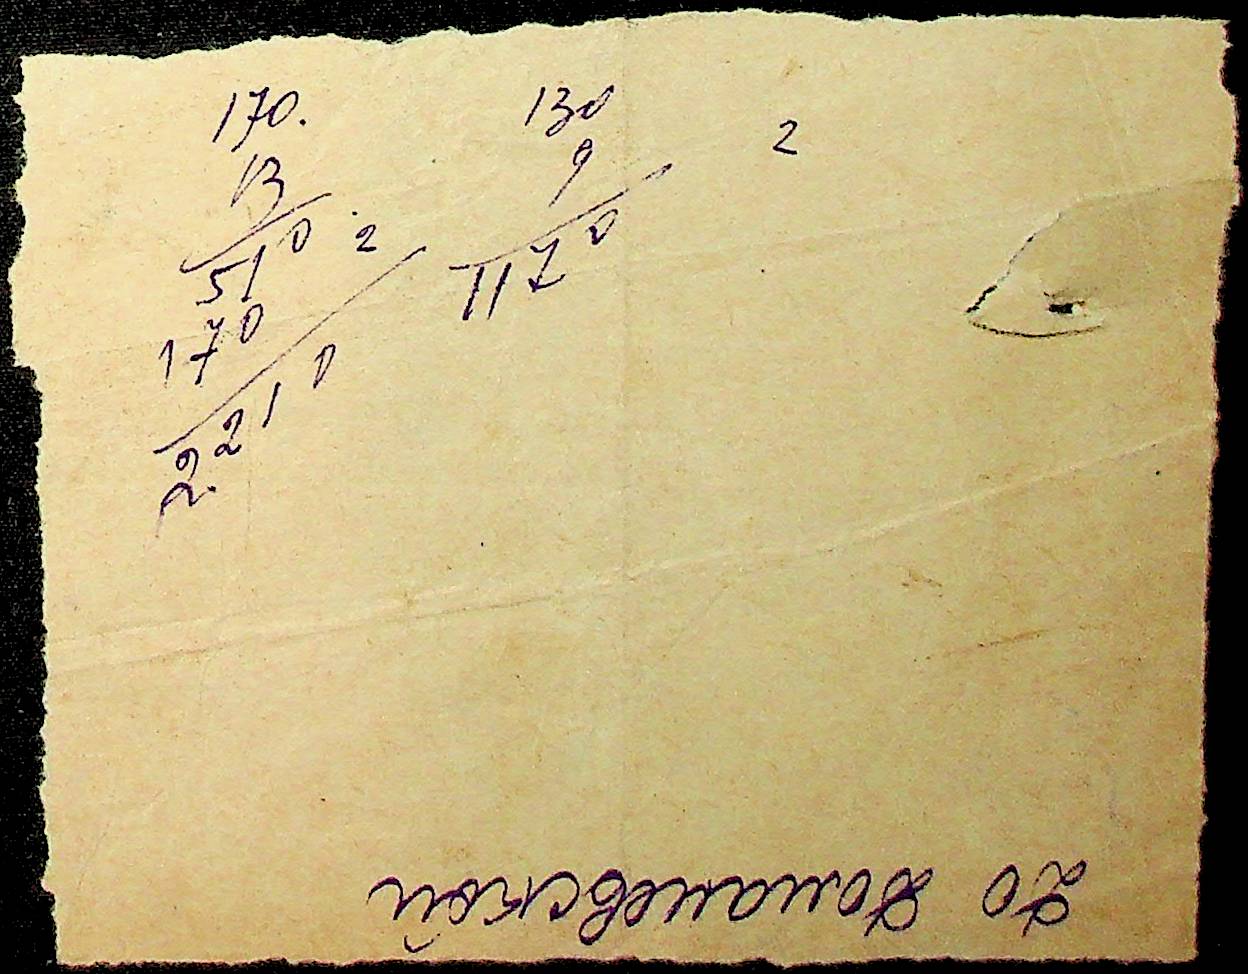 170.
13
510 2
170
2210
130
9
1170
2
До Доманевской